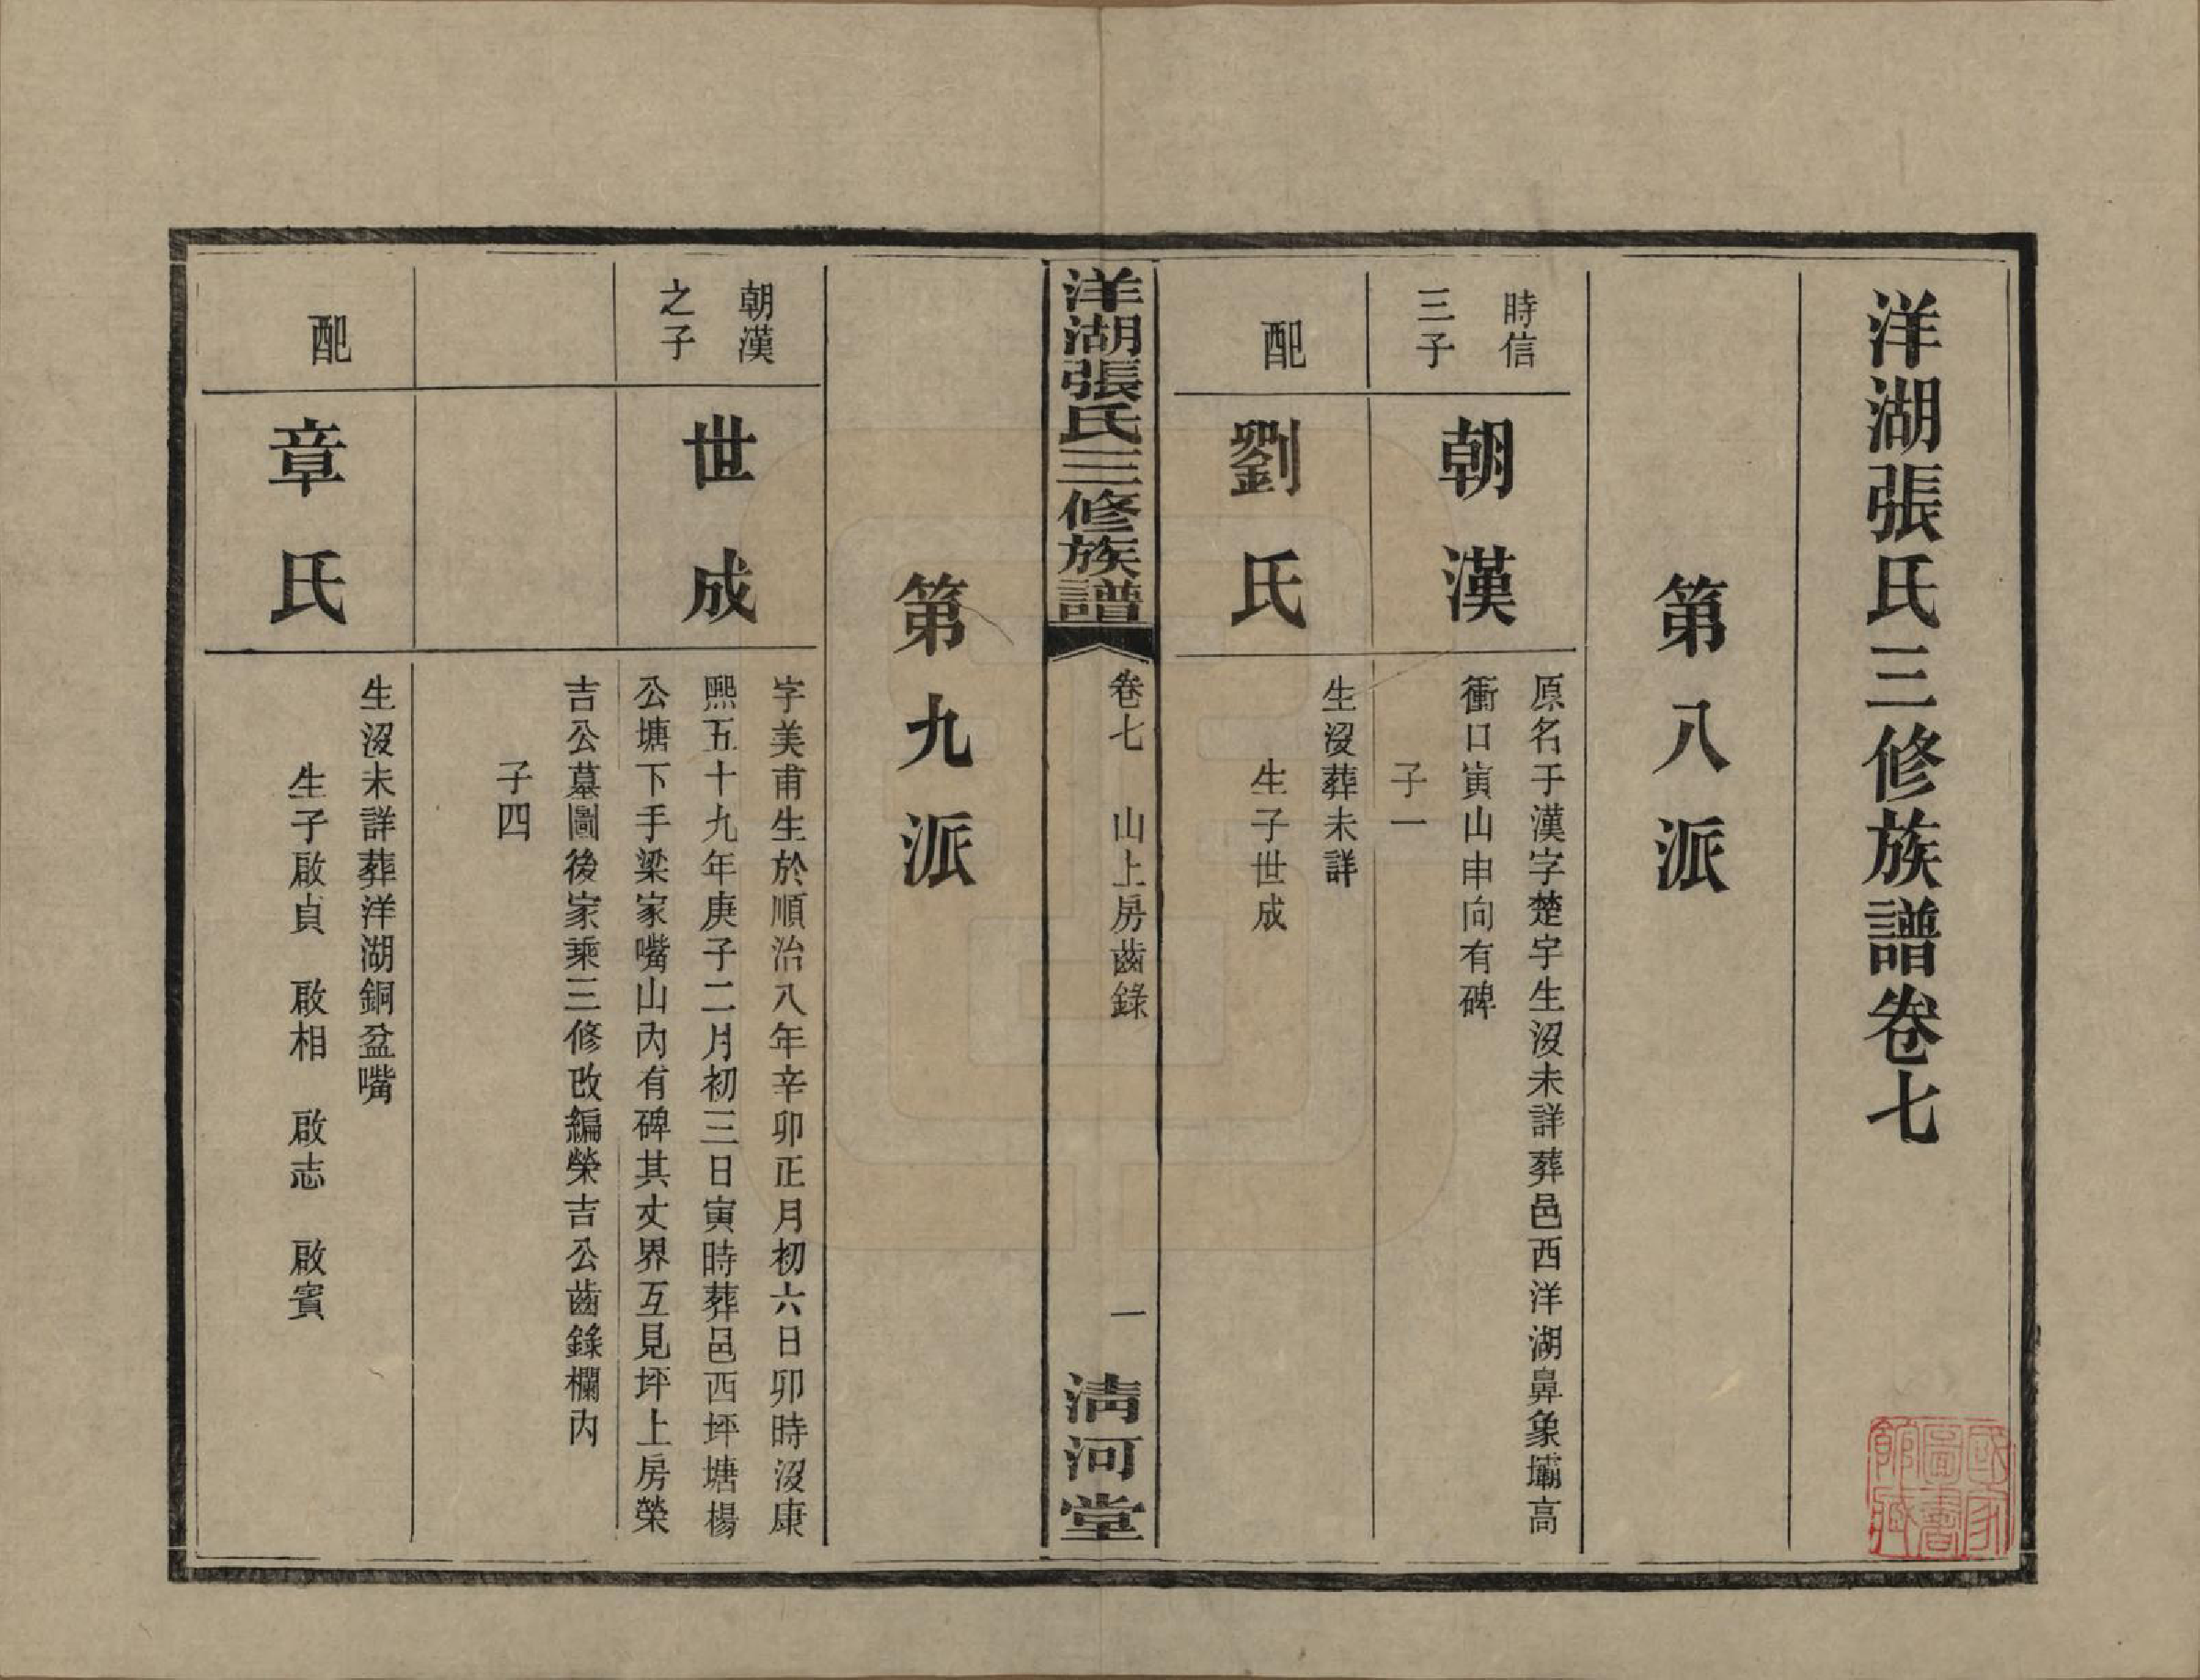 洋湖張氏三修族譜卷七
第八派
時信
三子
朝漢
原名于漢字楚宇生沒未詳葬邑西洋湖鼻象壩高
衝口寅山申向有碑
子一
配
劉氏
生沒葬未詳
生子世成
洋湖張氏三修族譜
卷七 山上房齒錄
一
淸河堂
第九派
朝漢
之子
世成
字美甫生於順治八年辛卯正月初六日卯時沒康
熙五十九年庚子二月初三日寅時葬邑西坪塘楊
公塘下手梁家嘴山內有碑其丈界互見坪上房榮
吉公墓圖後家乘三修改編榮吉公齒錄欄內
子四
配
章氏
生沒未詳葬洋湖銅盆嘴
生子啟貞 啟相 啟志 啟賓
國家
圖書
館藏